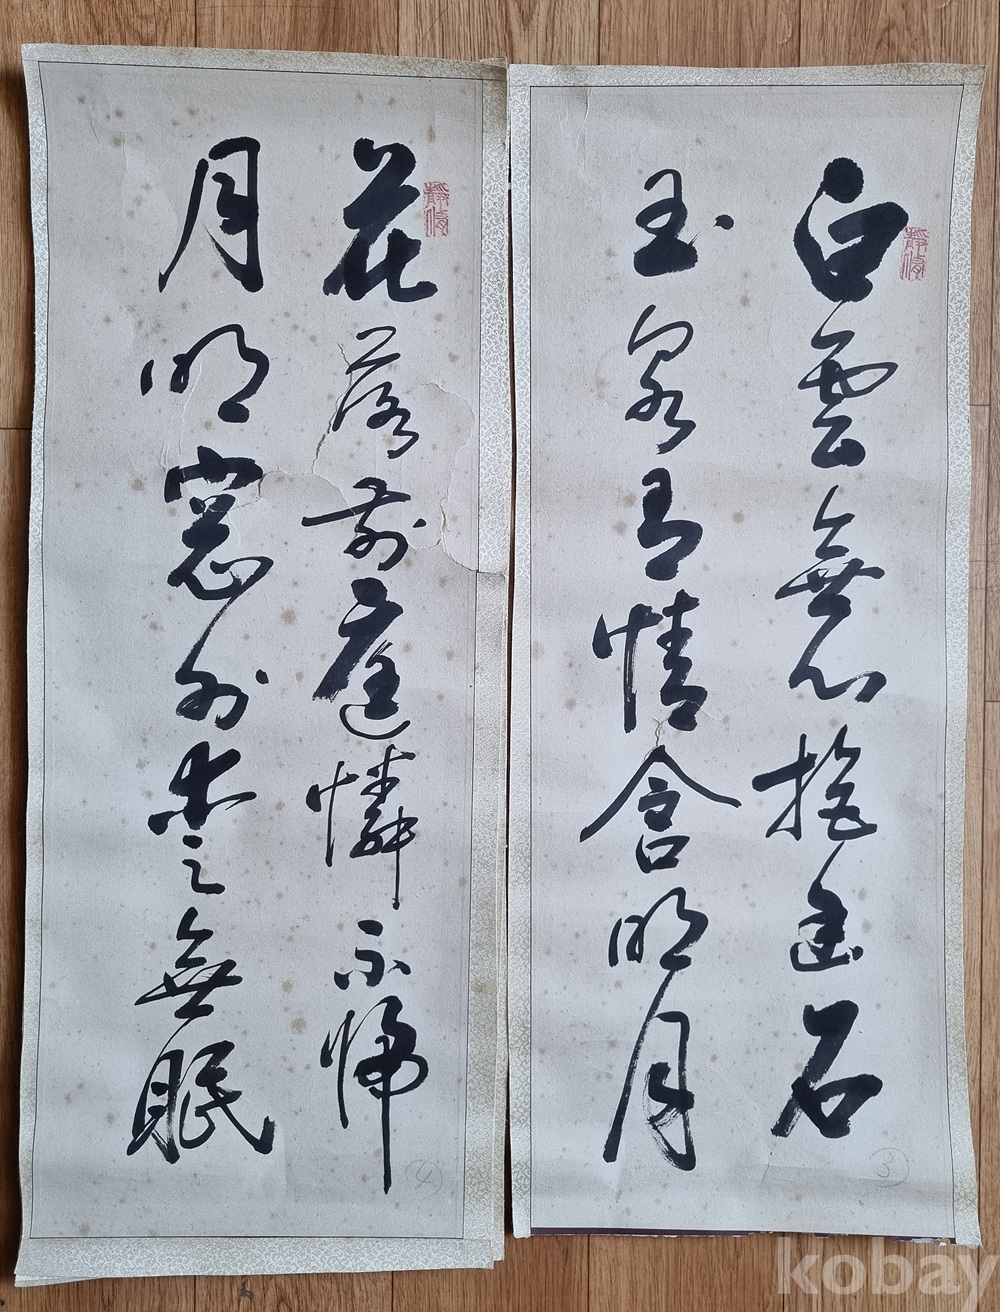 白雲無心抱幽石
玉泉有情含明月
③
花落前庭憐不掃
月明窓外愛無眠
④
kobay